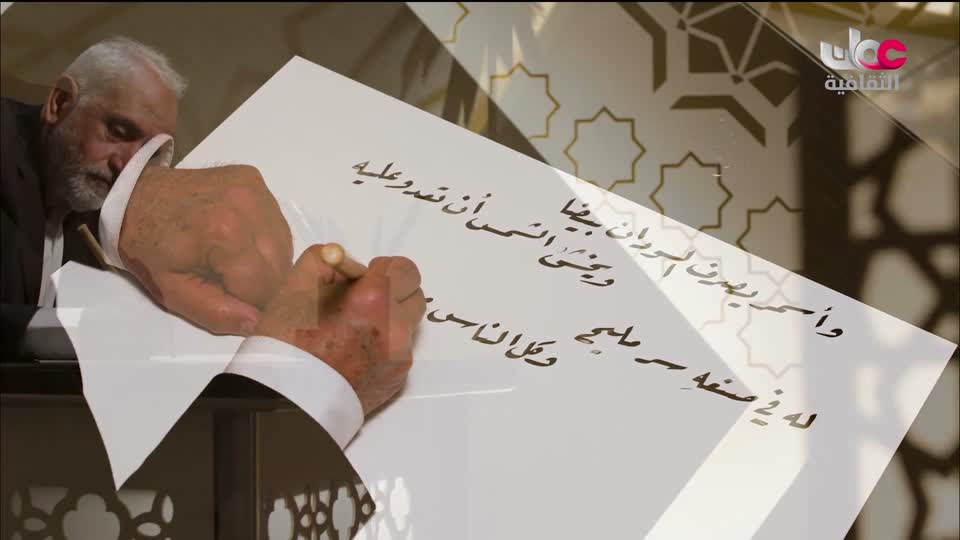 عمان
الثقافية
وأسمر يصرف السودان بيضا
ويخشى الشمس أن تعدو عليه
له في صنعةٍ سر مليح
وكل الناس